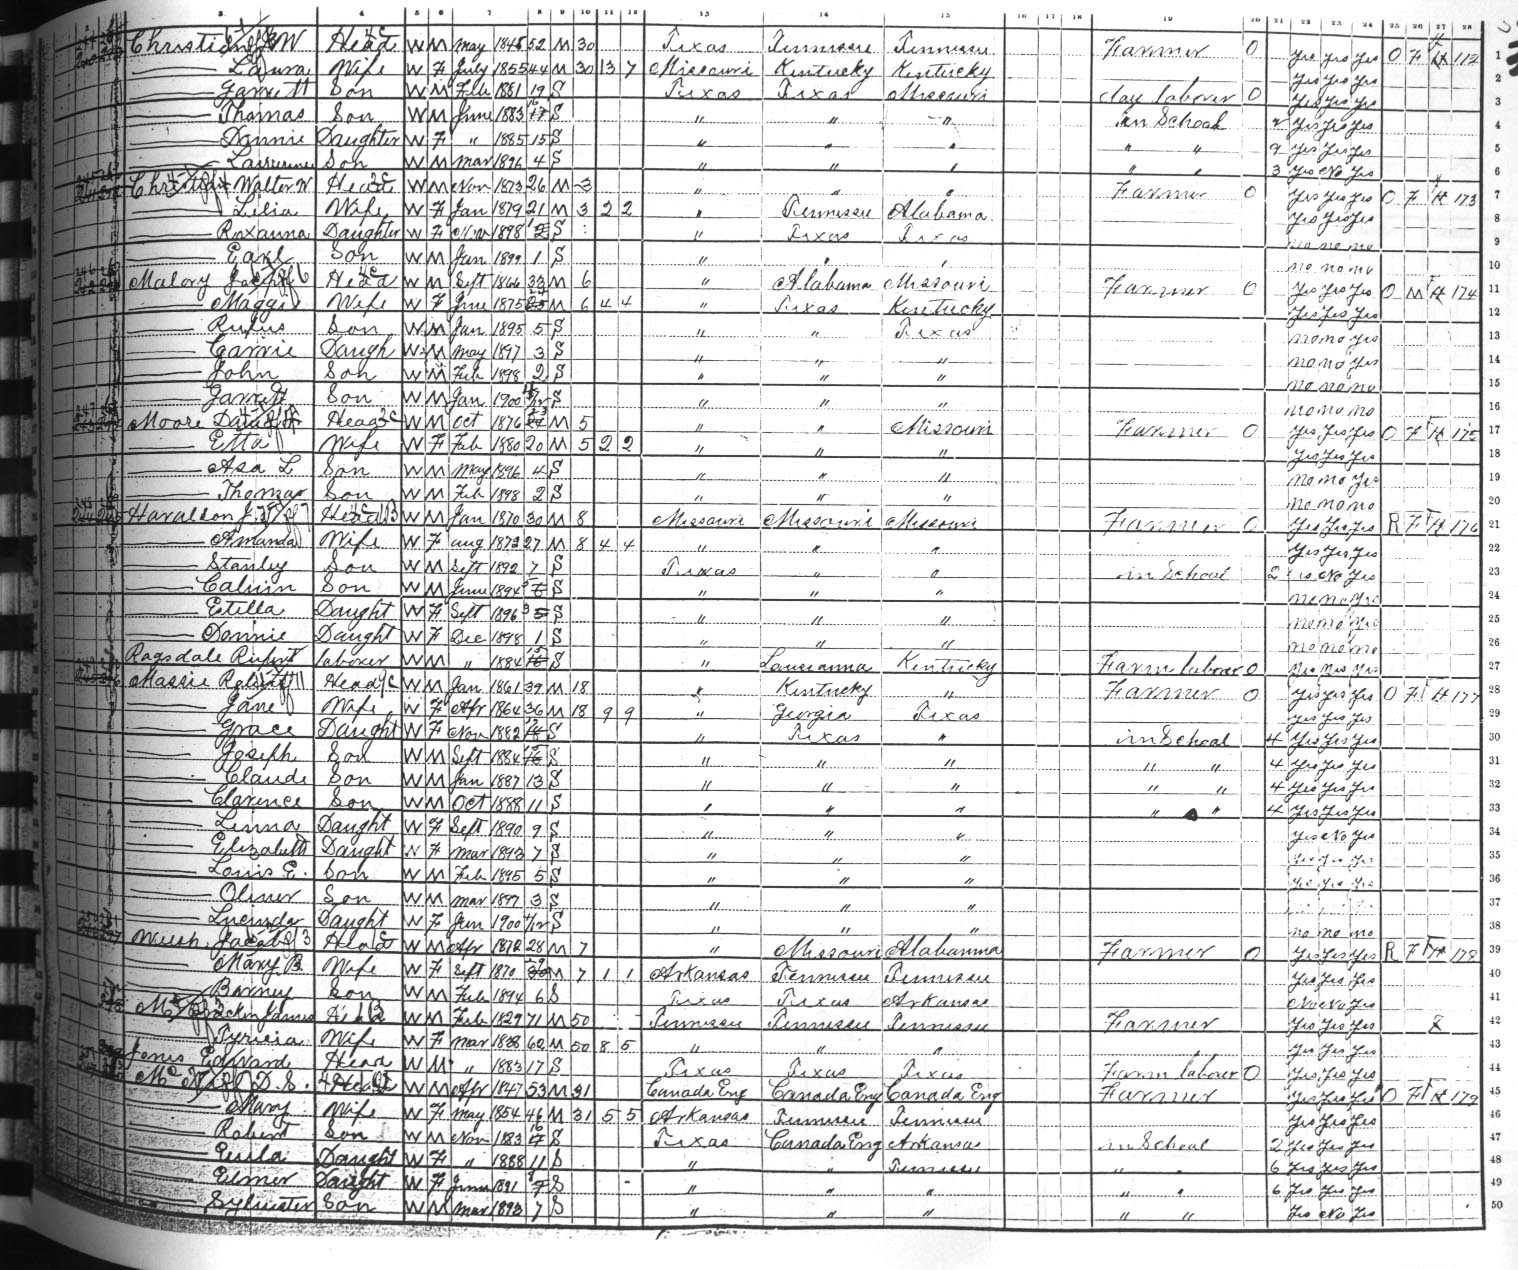 3 4 5 6 7 8 9 10 11 12 13 14 15 16 17 18 19 20 21 22 23 24 25 26 27 28
Head W M May 1848 52 M 30 Texas Tennessee Tennessee Farmer 0 Yes Yes Yes O F 172 1
Laura Wife W F July 1855 44 M 30 13 7 Missouri Kentucky Kentucky Yes Yes Yes 2
Garrett Son W M Feb 1881 19 S Texas Texas Missouri day laborer 0 Yes Yes Yes 3
Thomas Son W M June 1883 S " " " in School Yes Yes Yes 4
Donnie Daughter W F " 1885 15 S " " " " " 9 Yes Yes Yes 5
Son W M Mar 1896 4 S " " " " " 3 Yes No Yes 6
Walter W Head W M Nov 1873 26 M 3 " " " Farmer 0 Yes Yes Yes O F H 173 7
Lilia Wife W F Jan 1879 21 M 3 2 2 " Tennessee Alabama Yes Yes Yes 8
Roxanna Daughter W F 1898 S " Texas Texas no no no 9
Earl Son W M Jan 1899 1 S " " " no no no 10
Malory Joseph Head W M Sept 1866 33 M 6 " Alabama Missouri Farmer 0 Yes Yes Yes O M 174 11
Maggie Wife W F June 1875 M 6 4 4 " Texas Kentucky Yes Yes Yes 12
Rufus Son W M Jan 1895 5 S " " Texas no no yes 13
Carrie Daugh W M May 1897 3 S " " " no no yes 14
John Son W M Feb 1898 2 S " " " no no no 15
Garrett Son W M Jan 1900 4/12 S " " " no no no 16
Moore Head W M Oct 1876 M 5 " " Missouri Farmer 0 Yes Yes Yes O F H 175 17
Etta Wife W F Feb 1880 20 M 5 2 2 " " " Yes Yes Yes 18
Asa L Son W M May 1896 4 S " " " no no yes 19
Thomas Son W M Feb 1898 2 S " " " no no no 20
Haralson J. Head W M Jan 1870 30 M 8 Missouri Missouri Missouri Farmer 0 Yes Yes Yes R F H 176 21
Amanda Wife W F Aug 1872 27 M 8 4 4 " " " Yes Yes Yes 22
Stanley Son W M Sept 1892 7 S Texas " " in School 2 No Yes 23
Calvin Son W M June 1894 S " " " no no yes 24
Estilla Daught W F Sept 1896 3 S " " " no no yes 25
Donnie Daught W F Dec 1898 1 S " " " no no no 26
Ragsdale Rufus laborer W M " 1884 15 S " Louseanna Kentucky Farm laborer 0 Yes Yes Yes 27
Massie Robert Head W M Jan 1861 39 M 18 " Kentucky " Farmer 0 Yes Yes Yes O F H 177 28
Jane Wife W F Apr 1864 36 M 18 9 9 " Georgia Texas yes yes yes 29
Grace Daught W F Nov 1882 S " Texas " in School 4 Yes Yes Yes 30
Joseph Son W M Sept 1884 S " " " " " 4 Yes Yes Yes 31
Claude Son W M Jan 1887 13 S " " " " " 4 Yes Yes Yes 32
Clarence Son W M Oct 1888 11 S " " " " " 4 Yes Yes Yes 33
Linna Daught W F Sept 1890 9 S " " " Yes No Yes 34
Elizabeth Daught W F Mar 1893 7 S " " " 35
Louis E. Son W M Feb 1895 5 S " " " 36
Oliver Son W M Mar 1897 3 S " " " 37
Lucinda Daught W F Jan 1900 4/12 S " " " no no no 38
Jacob Head W M Apr 1872 28 M 7 " Missouri Alabama Farmer 0 Yes Yes Yes R F H 178 39
Mary B. Wife W F Sept 1870 M 7 1 1 Arkansas Tennessee Tennessee Yes Yes Yes 40
Barney Son W M Feb 1894 6 S Texas Texas Arkansas No No Yes 41
James Head W M Feb 1829 71 M 50 Tennessee Tennessee Tennessee Farmer Yes Yes Yes 42
Wife W F Mar 1838 62 M 50 8 5 " " " Yes Yes Yes 43
Jones Edward Head W M " 1883 17 S Texas Texas Texas Farm laborer 0 Yes Yes Yes 44
D. S. Head W M Apr 1847 53 M 31 Canada Eng Canada Eng Canada Eng Farmer Yes Yes Yes O F H 179 45
Mary Wife W F May 1854 46 M 31 5 5 Arkansas Tennessee Tennessee Yes Yes Yes 46
Robert Son W M Nov 1883 16 S Texas Canada Eng Arkansas in School 2 Yes Yes Yes 47
Eula Daught W F " 1888 11 S " " Tennessee " " 6 Yes Yes Yes 48
Elmer Daught W F June 1891 S " " " " " 6 Yes Yes Yes 49
Sylvester Son W M Mar 1893 7 S " " " " " Yes No Yes 50